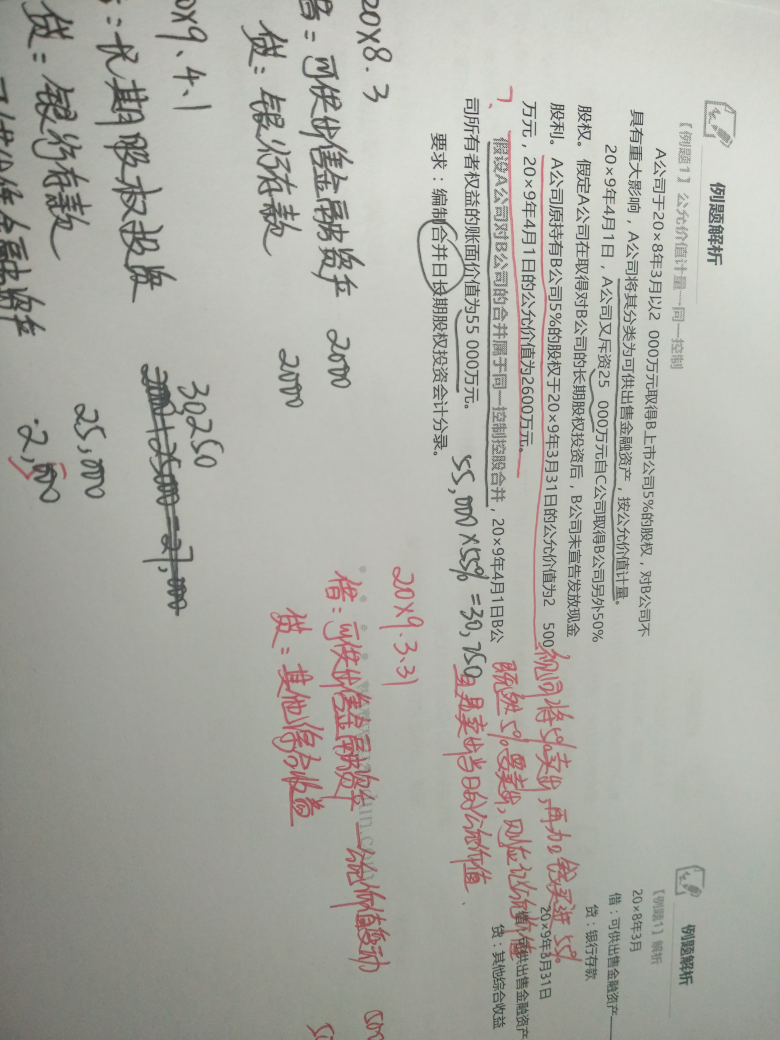 例题解析
【例题1】公允价值计量—同一控制
A公司于20×8年3月以2 000万元取得B上市公司5%的股权，对B公司不
具有重大影响，A公司将其分类为可供出售金融资产，按公允价值计量。
20×9年4月1日，A公司又斥资25 000万元自C公司取得B公司另外50%
股权。假定A公司在取得对B公司的长期股权投资后，B公司未宣告发放现金
股利。A公司原持有B公司5%的股权于20×9年3月31日的公允价值为2 500
万元，20×9年4月1日的公允价值为2600万元。
假设A公司对B公司的合并属于同一控制控股合并，20×9年4月1日B公
司所有者权益的账面价值为55 000万元。
要求：编制合并日长期股权投资会计分录。
55,000×55%=30,250
视同将5%卖出，再加上钱买进55%
既然5%要卖出，则应记公允价值
且是卖出当日的公允价值．
20×8.3
借：可供出售金融资产 2000
贷：银行存款 2000
20×9.3.31
借：可供出售金融资产—公允价值变动 500
贷：其他综合收益
0×9.4.1
：长期股权投资 30250
2000+25000=27,000
贷：银行存款 25,000
可供出售金融资产 2,500
例题解析
【例题1】解析
20×8年3月
借：可供出售金融资产
贷：银行存款
20×9年3月31日
借：可供出售金融资产
贷：其他综合收益